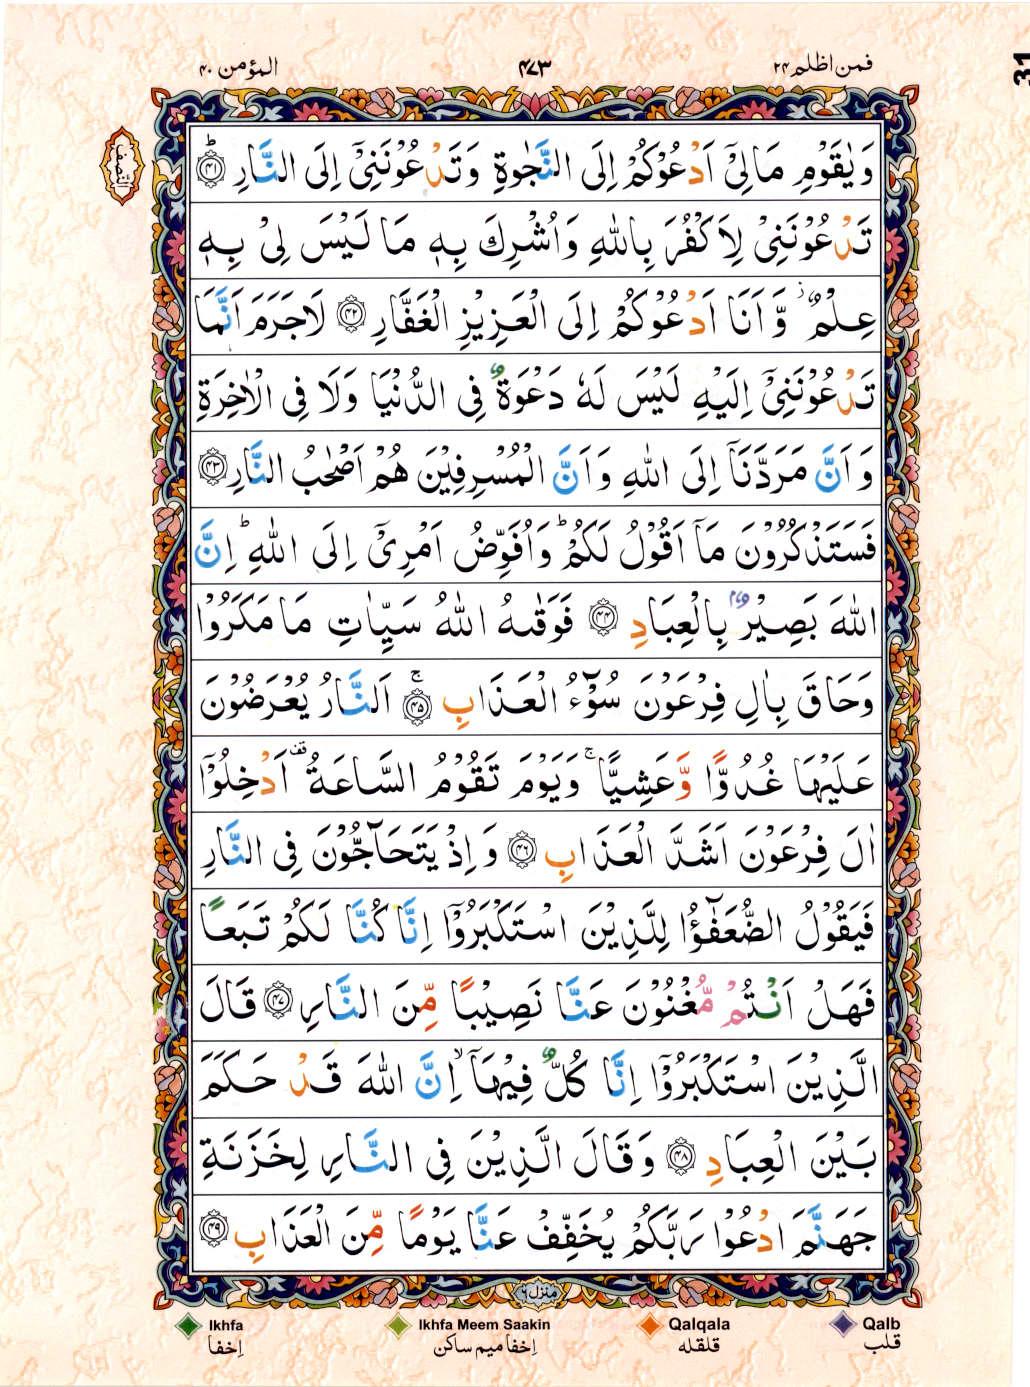 المؤمن ۴۰
۴۷۳
فمن اظلم ۲۴
31
النصف
وَيٰقَوۡمِ مَا لِىۡۤ اَدۡعُوۡكُمۡ اِلَى النَّجٰوةِ وَتَدۡعُوۡنَنِىۡۤ اِلَى النَّارِ ؕ‏ ﴿۴۱﴾
تَدۡعُوۡنَنِىۡ لِاَكۡفُرَ بِاللّٰهِ وَاُشۡرِكَ بِهٖ مَا لَيۡسَ لِىۡ بِهٖ
عِلۡمٌ ؗ وَّاَنَا اَدۡعُوۡكُمۡ اِلَى الۡعَزِيۡزِ الۡغَفَّارِ ﴿۴۲﴾ لَا جَرَمَ اَنَّمَا
تَدۡعُوۡنَنِىۡۤ اِلَيۡهِ لَيۡسَ لَهٗ دَعۡوَةٌ فِى الدُّنۡيَا وَلَا فِى الۡاٰخِرَةِ
وَاَنَّ مَرَدَّنَاۤ اِلَى اللّٰهِ وَاَنَّ الۡمُسۡرِفِيۡنَ هُمۡ اَصۡحٰبُ النَّارِ ﴿۴۳﴾
فَسَتَذۡكُرُوۡنَ مَاۤ اَقُوۡلُ لَكُمۡؕ وَاُفَوِّضُ اَمۡرِىۡۤ اِلَى اللّٰهِؕ اِنَّ
اللّٰهَ بَصِيۡرٌۢ بِالۡعِبَادِ ﴿۴۴﴾ فَوَقٰٮهُ اللّٰهُ سَيِّاٰتِ مَا مَكَرُوۡا
وَحَاقَ بِاٰلِ فِرۡعَوۡنَ سُوۡٓءُ الۡعَذَابِۚ ﴿۴۵﴾ اَلنَّارُ يُعۡرَضُوۡنَ
عَلَيۡهَا غُدُوًّا وَّعَشِيًّاۚ وَيَوۡمَ تَقُوۡمُ السَّاعَةُ قف اَدۡخِلُوۡۤا
اٰلَ فِرۡعَوۡنَ اَشَدَّ الۡعَذَابِ ﴿۴۶﴾ وَاِذۡ يَتَحَآجُّوۡنَ فِى النَّارِ
فَيَقُوۡلُ الضُّعَفٰٓؤُا لِلَّذِيۡنَ اسۡتَكۡبَرُوۡۤا اِنَّا كُنَّا لَكُمۡ تَبَعًا
فَهَلۡ اَنۡتُمۡ مُّغۡنُوۡنَ عَنَّا نَصِيۡبًا مِّنَ النَّارِ ﴿۴۷﴾ قَالَ
الَّذِيۡنَ اسۡتَكۡبَرُوۡۤا اِنَّا كُلٌّ فِيۡهَاۤ ۙ اِنَّ اللّٰهَ قَدۡ حَكَمَ
بَيۡنَ الۡعِبَادِ ﴿۴۸﴾ وَقَالَ الَّذِيۡنَ فِى النَّارِ لِخَزَنَةِ
جَهَنَّمَ ادۡعُوۡا رَبَّكُمۡ يُخَفِّفۡ عَنَّا يَوۡمًا مِّنَ الۡعَذَابِ ﴿۴۹﴾
منزل ۶
Ikhfa
اِخفا
Ikhfa Meem Saakin
اِخفا میم ساکن
Qalqala
قلقله
Qalb
قلب